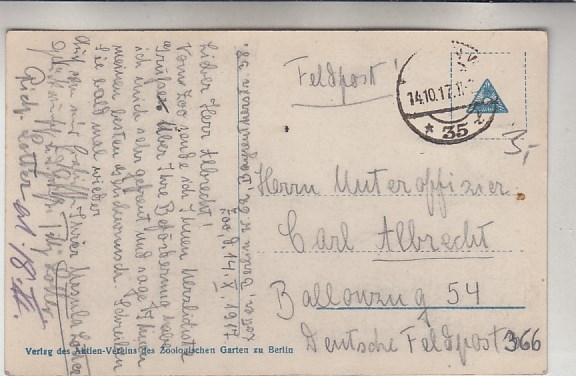 Feldpost!
14.10.17.11-
* 35
3,-
Herrn Unteroffizier
Carl Albrecht
Ballonzug 54
Deutsche Feldpost 366
Lotter, Berlin W 62, Bayreutherstr. 38.
Zoo, d. 14. X. 1917
Lieber Herr Albrecht!
Vom Zoo send ich Ihnen herzlichste
Grüße. Über Ihre Beförderung habe
ich mich sehr gefreut und sage Ihnen
meinen besten Glückwunsch. Schreiben
Sie bald mal wieder
Auch von mir Ihre Ursula Lotter
Rich. Lotter
Verlag des Aktien-Vereins des Zoologischen Garten zu Berlin